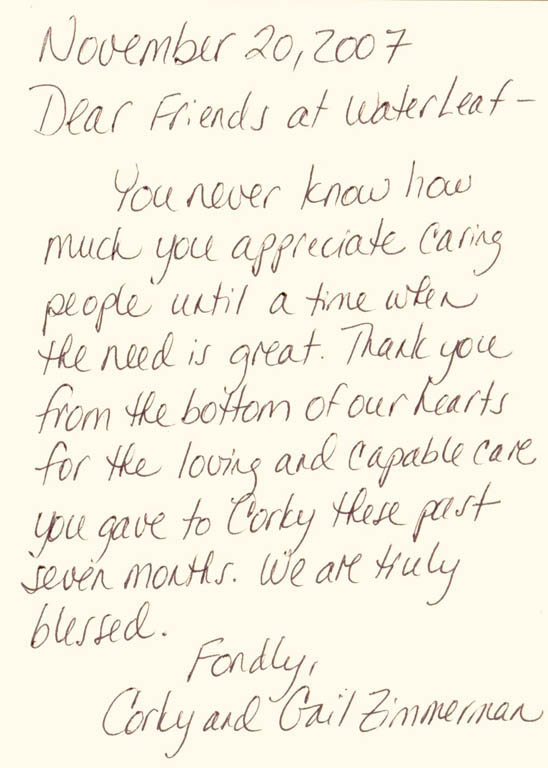 November 20, 2007
Dear Friends at WaterLeaf -
You never know how
much you appreciate caring
people until a time when
the need is great. Thank you
from the bottom of our hearts
for the loving and capable care
you gave to Corky these past
seven months. We are truly
blessed.
Fondly,
Corky and Gail Zimmerman